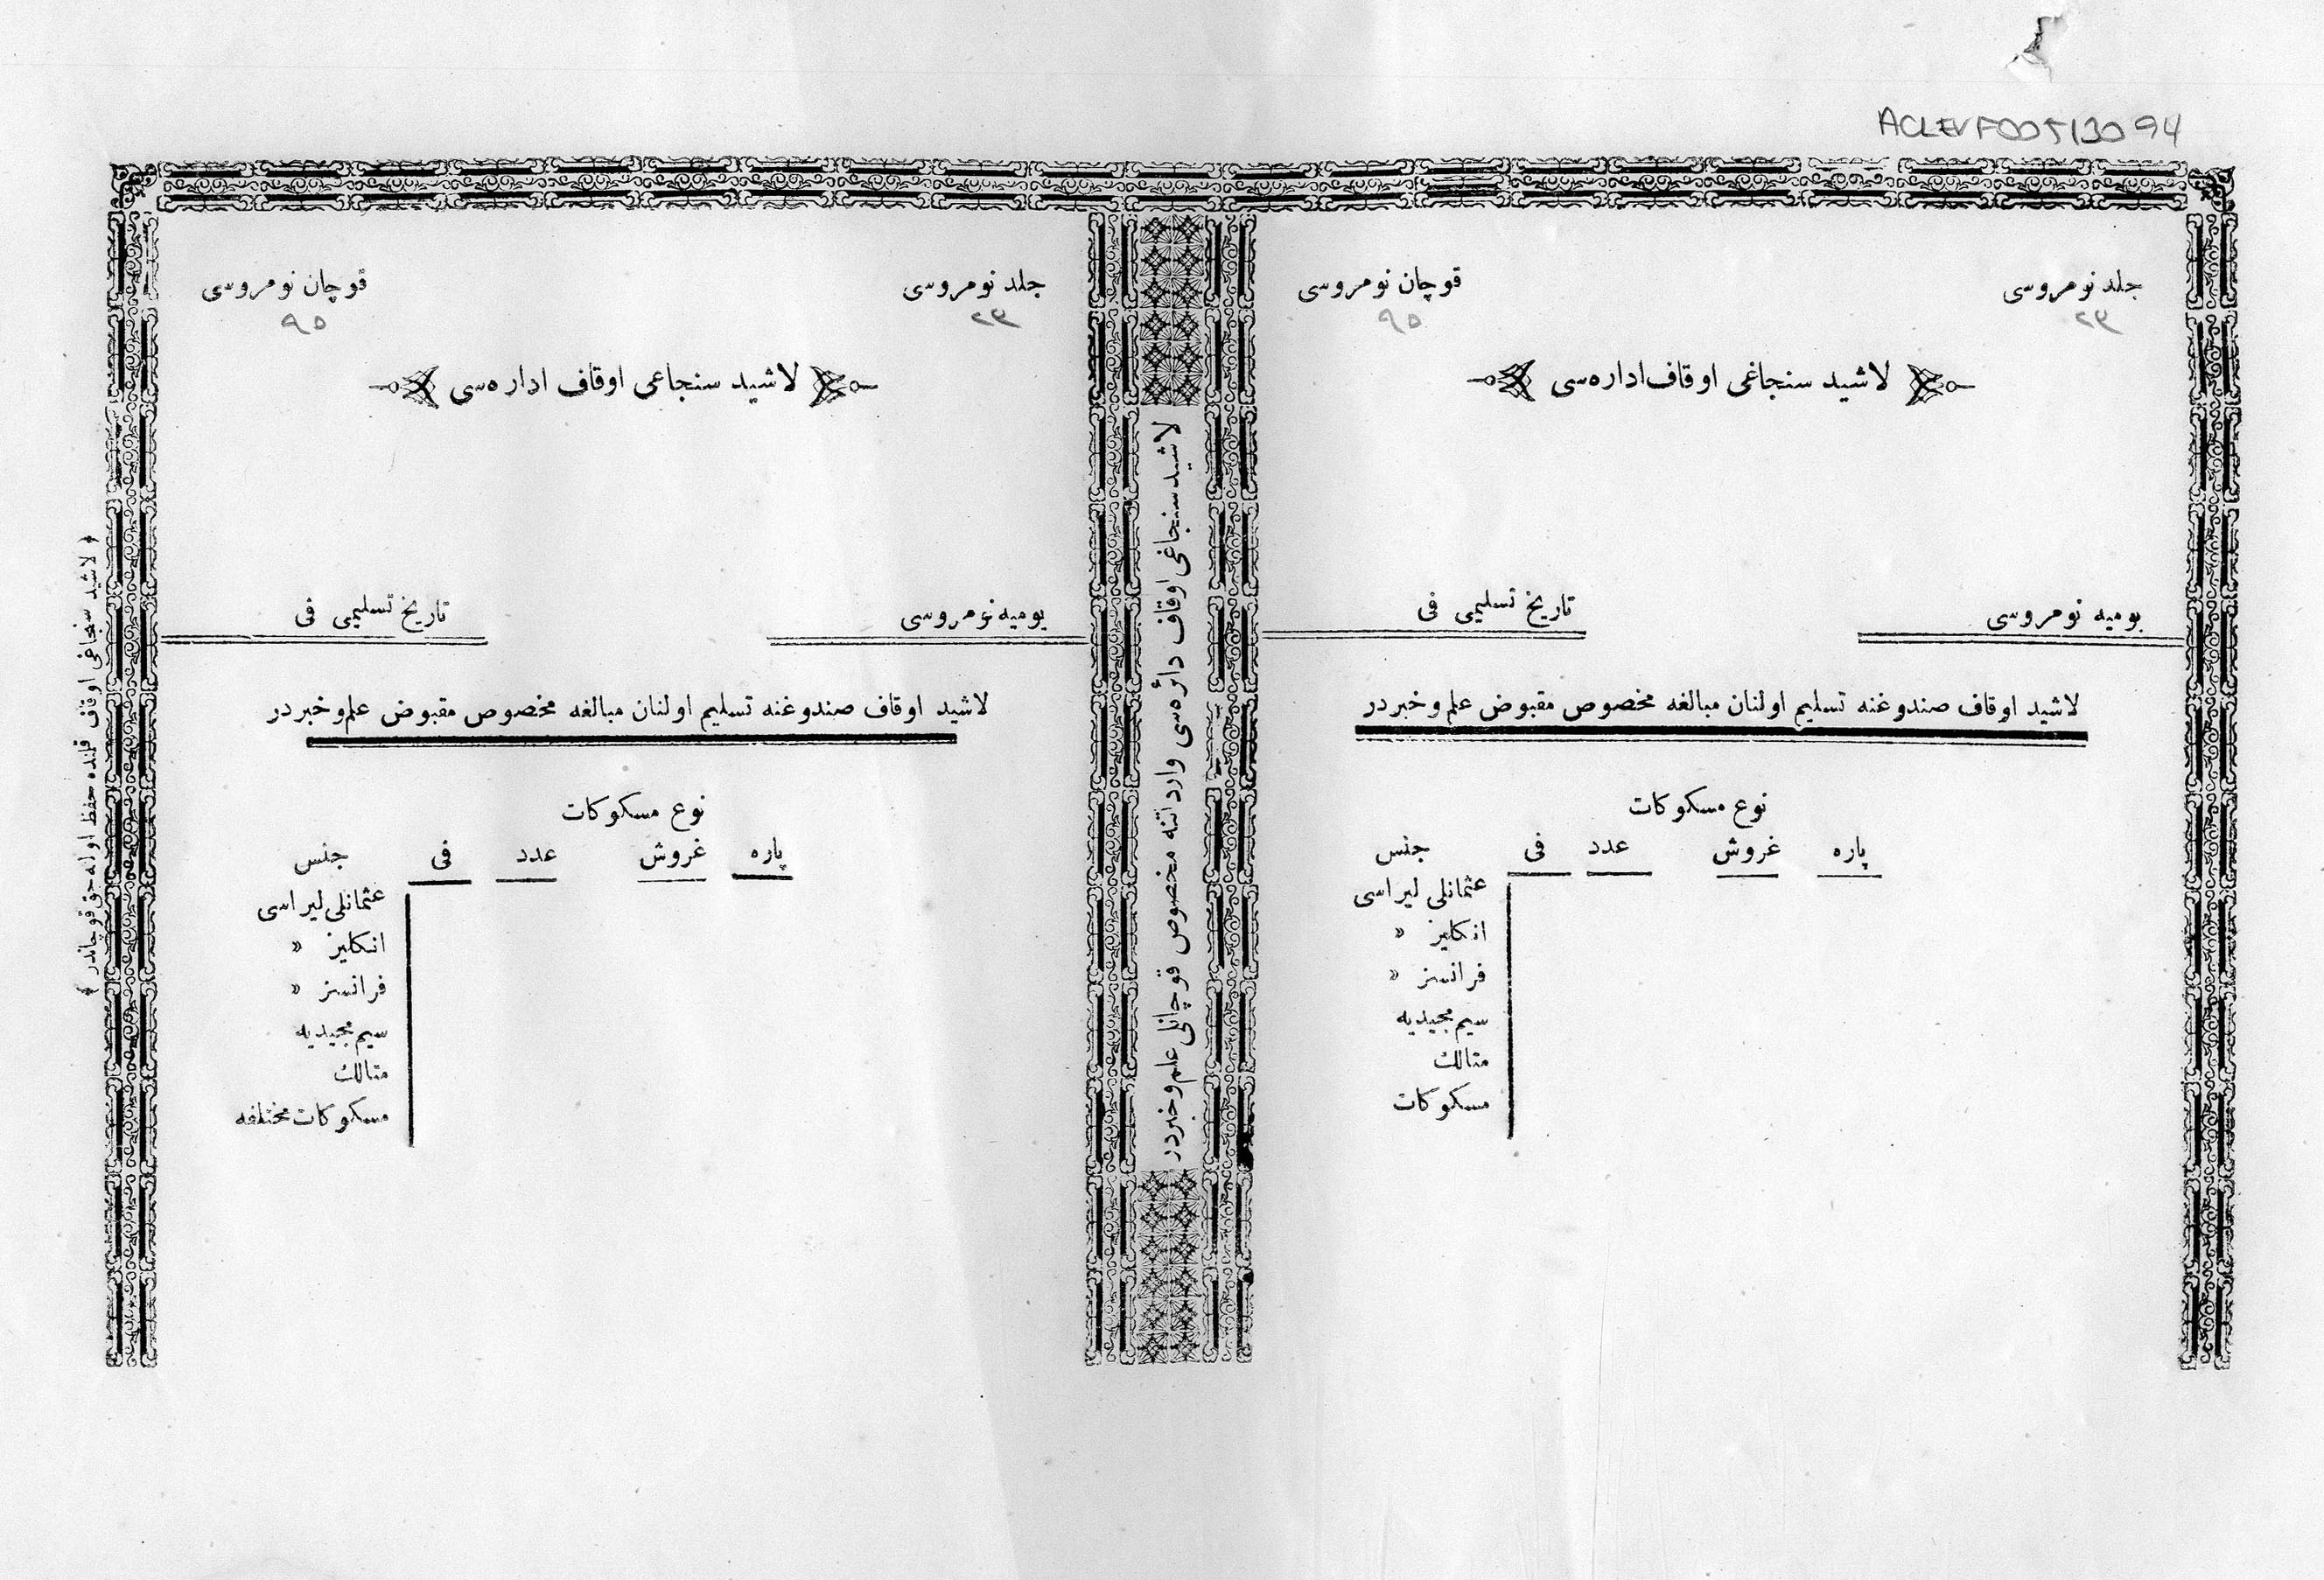 ACLEVF00513094
جلد نومروسی
٢٣
قوچان نومروسی
٩٥
لاشيد سنجاغی اوقاف اداره‌سی
يوميه نومروسی
تاريخ تسليمی فی
لاشيد اوقاف صندوغنه تسليم اولنان مبالغه مخصوص مقبوض علم و خبردر
نوع مسكوكات
پاره غروش عدد فی جنس
عثمانلی ليراسی
انكليز »
فرانسز »
سيم مجيديه
متالك
مسكوكات
لاشيد سنجاغی اوقاف دائره‌سی وارداتنه مخصوص قوچانلی علم و خبردر
جلد نومروسی
٢٣
قوچان نومروسی
٩٥
لاشيد سنجاغی اوقاف اداره‌سی
يوميه نومروسی
تاريخ تسليمی فی
لاشيد اوقاف صندوغنه تسليم اولنان مبالغه مخصوص مقبوض علم و خبردر
نوع مسكوكات
پاره غروش عدد فی جنس
عثمانلی ليراسی
انكليز »
فرانسز »
سيم مجيديه
متالك
مسكوكات مختلفه
﴿ لاشيد سنجاغی اوقاف قلمنده حفظ اوله‌جق قوچاندر ﴾